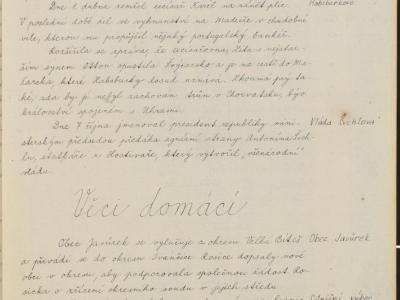 Dne 1. dubna zemřel císař Karel na zánět plic. Habsburkové
V poslední době žil ve vyhnanství na Madeiře v chudobné
vile, kterou mu propůjčil nějaký portugalský bankéř.
Rozšířila se zpráva, že excísařovna Zita s nejstar-
ším synem Ottou opustila Švýcarsko a je na cestě do Ma-
ďarska, které Habsburky dosud uznává. Shoaná prý ta-
ké, aby jí nebyl zachován trůn v Chorvatsku, býv.
království spojeném s Uhrami.
Dne 7. října jmenoval president republiky mini- Vláda Švehlova
sterským předsedou předáka agrární strany Antonína Šveh-
lu, statkáře z Hostivaře, který vytvořil "všenárodní"
vládu.
Věci domácí
Obec Javůrek se vylučuje z okresu Velká Bíteš Obec Javůrek
a převádí se do okresu Ivančice. Rosice dopsaly nové
obci v okresu, aby podporovala společnou žádost Ro-
sicka o zřízení okresního soudu v jejich středu